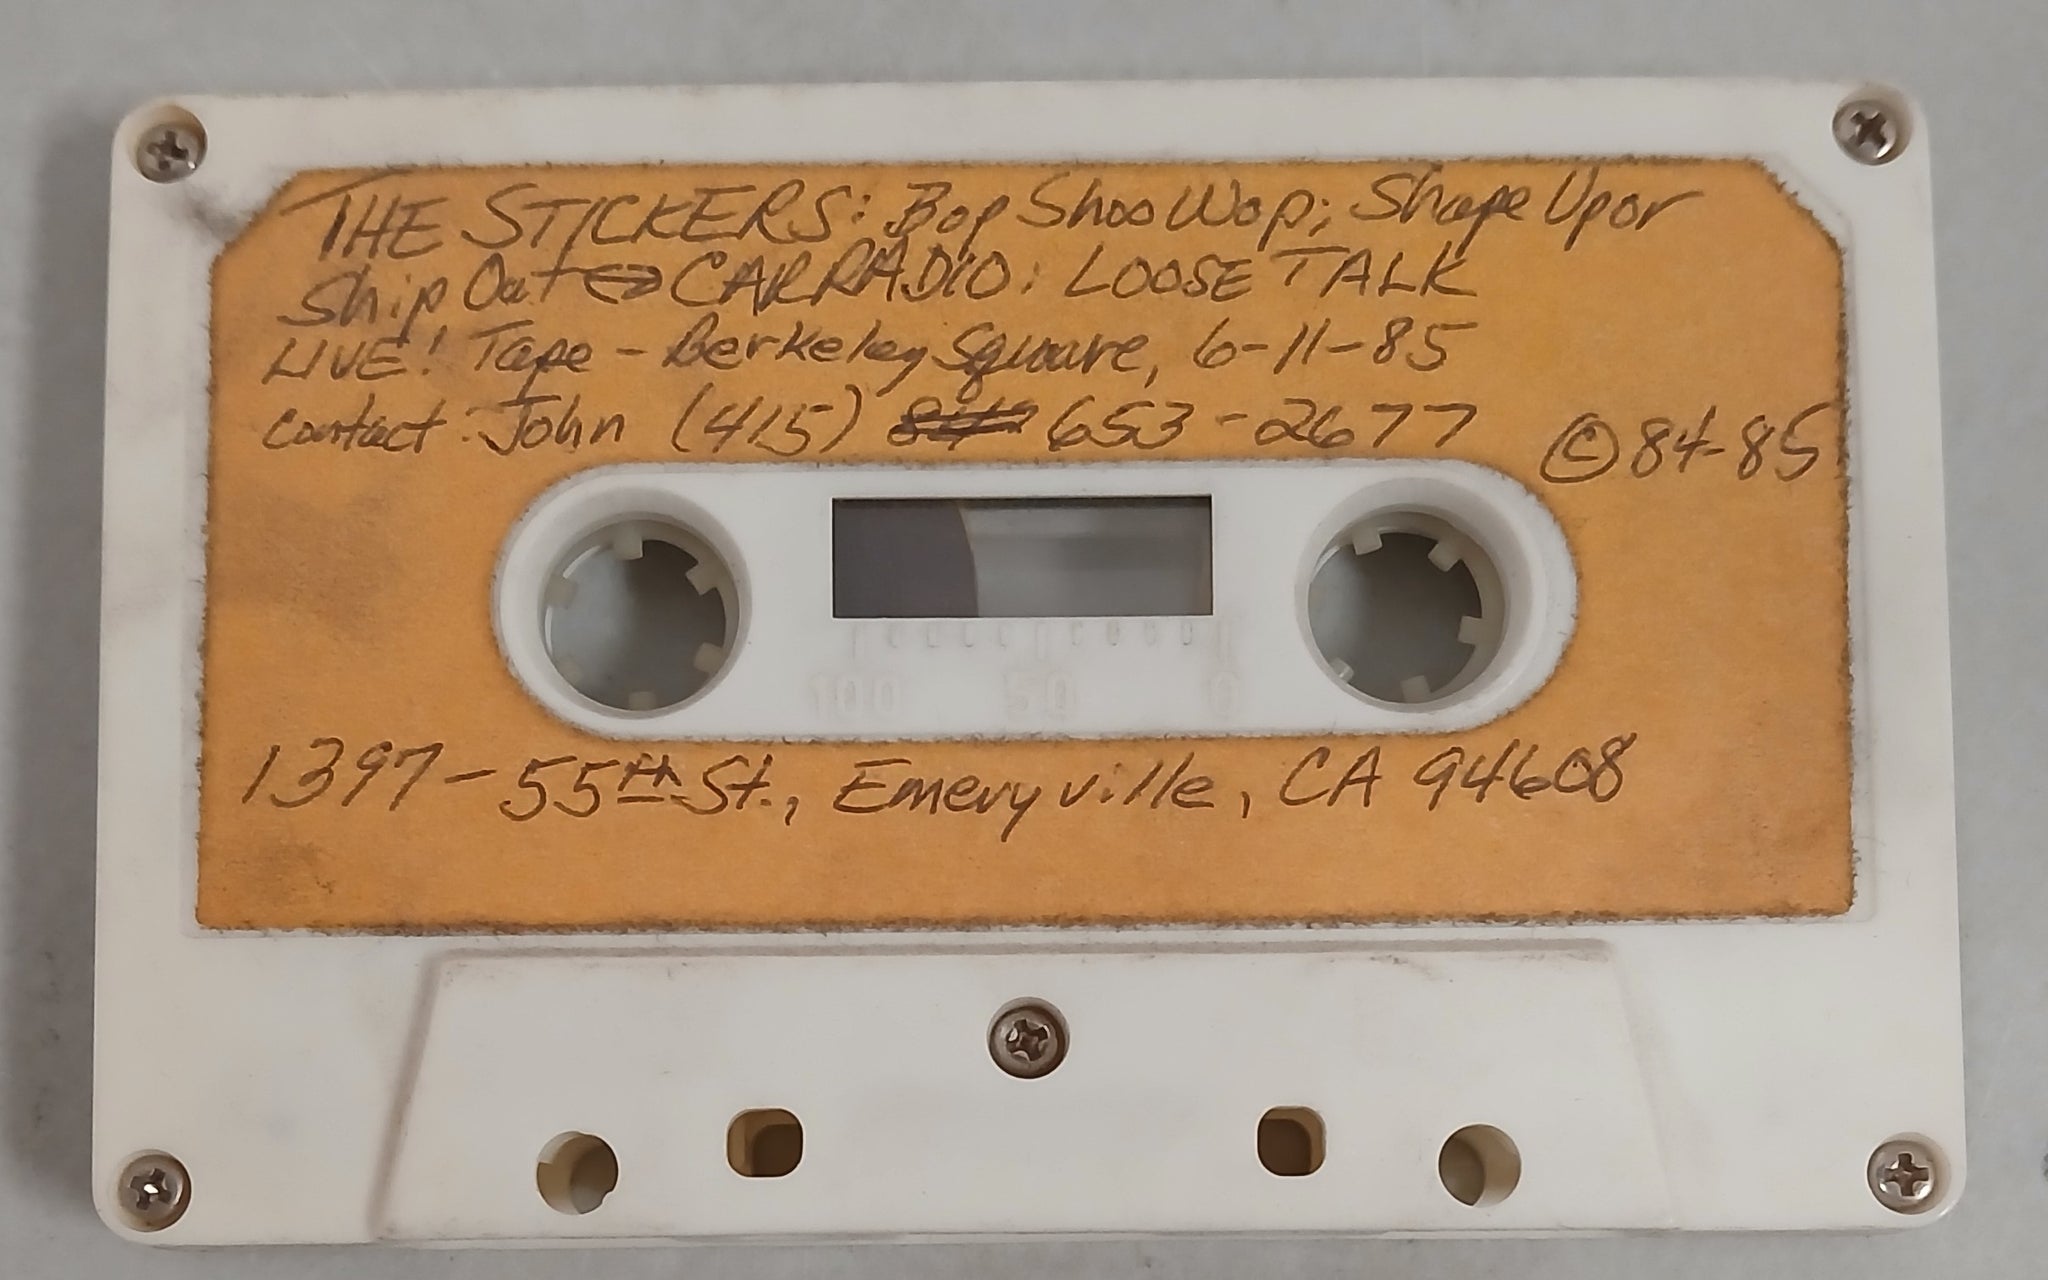 THE STICKERS: Bop Shoo Wop; Shape Up or
Ship Out ↔ CAR RADIO; LOOSE TALK
LIVE! Tape - Berkeley Square, 6-11-85
contact: John (415) 653-2677 © 84-85
100 50 0
1397 - 55th St., Emeryville, CA 94608